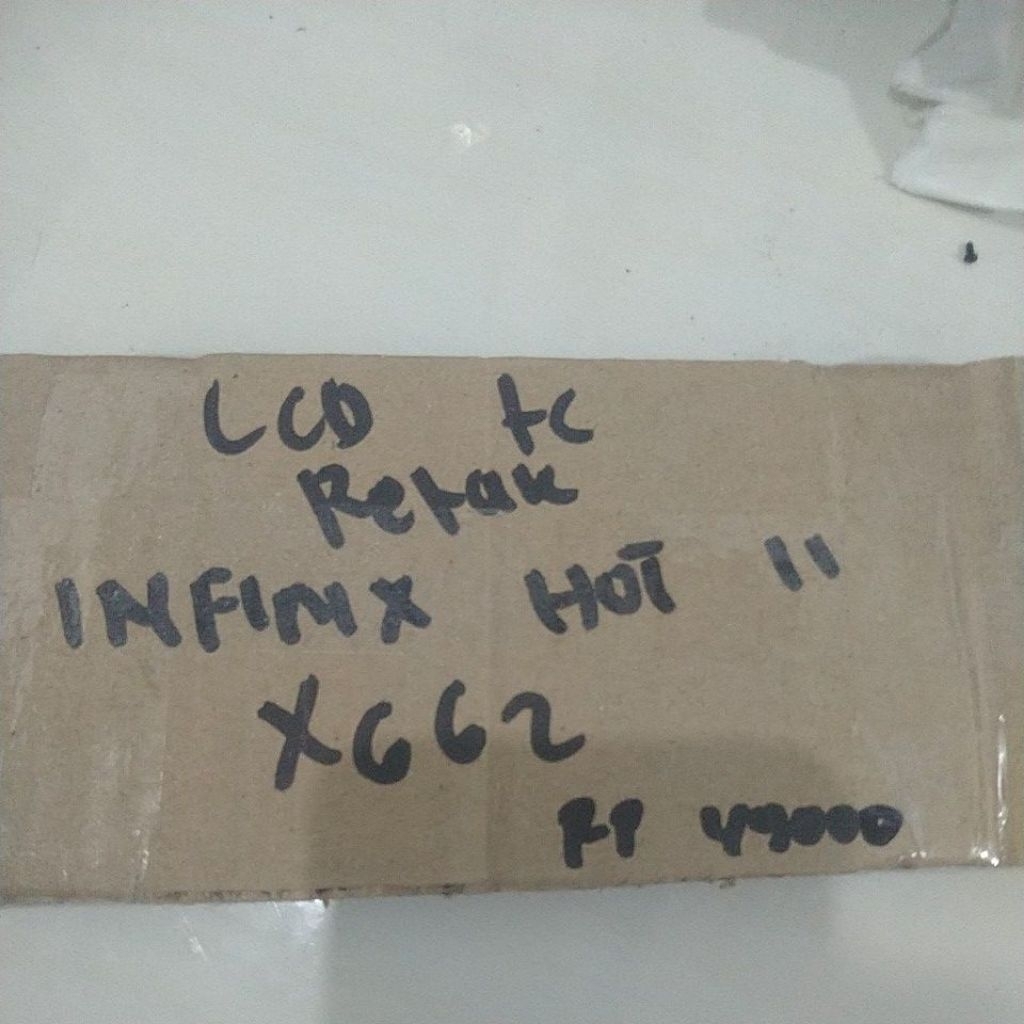 LCD tc
Retak
INFINIX HOT 11
X662
RP 49000